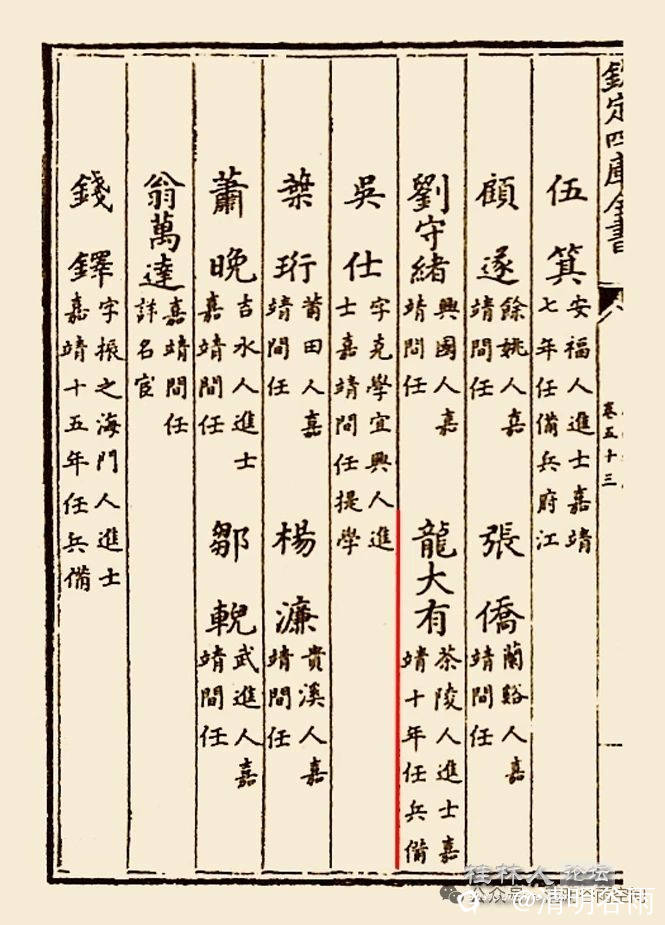 欽定四庫全書
卷五十三
伍箕 安福人進士嘉靖七年任備兵府江
顧遂 餘姚人嘉靖間任 張僑 蘭谿人嘉靖間任
劉守緒 興國人嘉靖間任 龍大有 茶陵人進士嘉靖十年任兵備
吳仕 字克學宜興人進士嘉靖間任提學
葉珩 莆田人嘉靖間任 楊濂 貴溪人嘉靖間任
蕭晚 吉水人進士嘉靖間任 鄒輗 武進人嘉靖間任
翁萬達 嘉靖間任詳名宦
錢鐸 字振之海門人進士嘉靖十五年任兵備
桂林人论坛
公众号
@清明谷雨